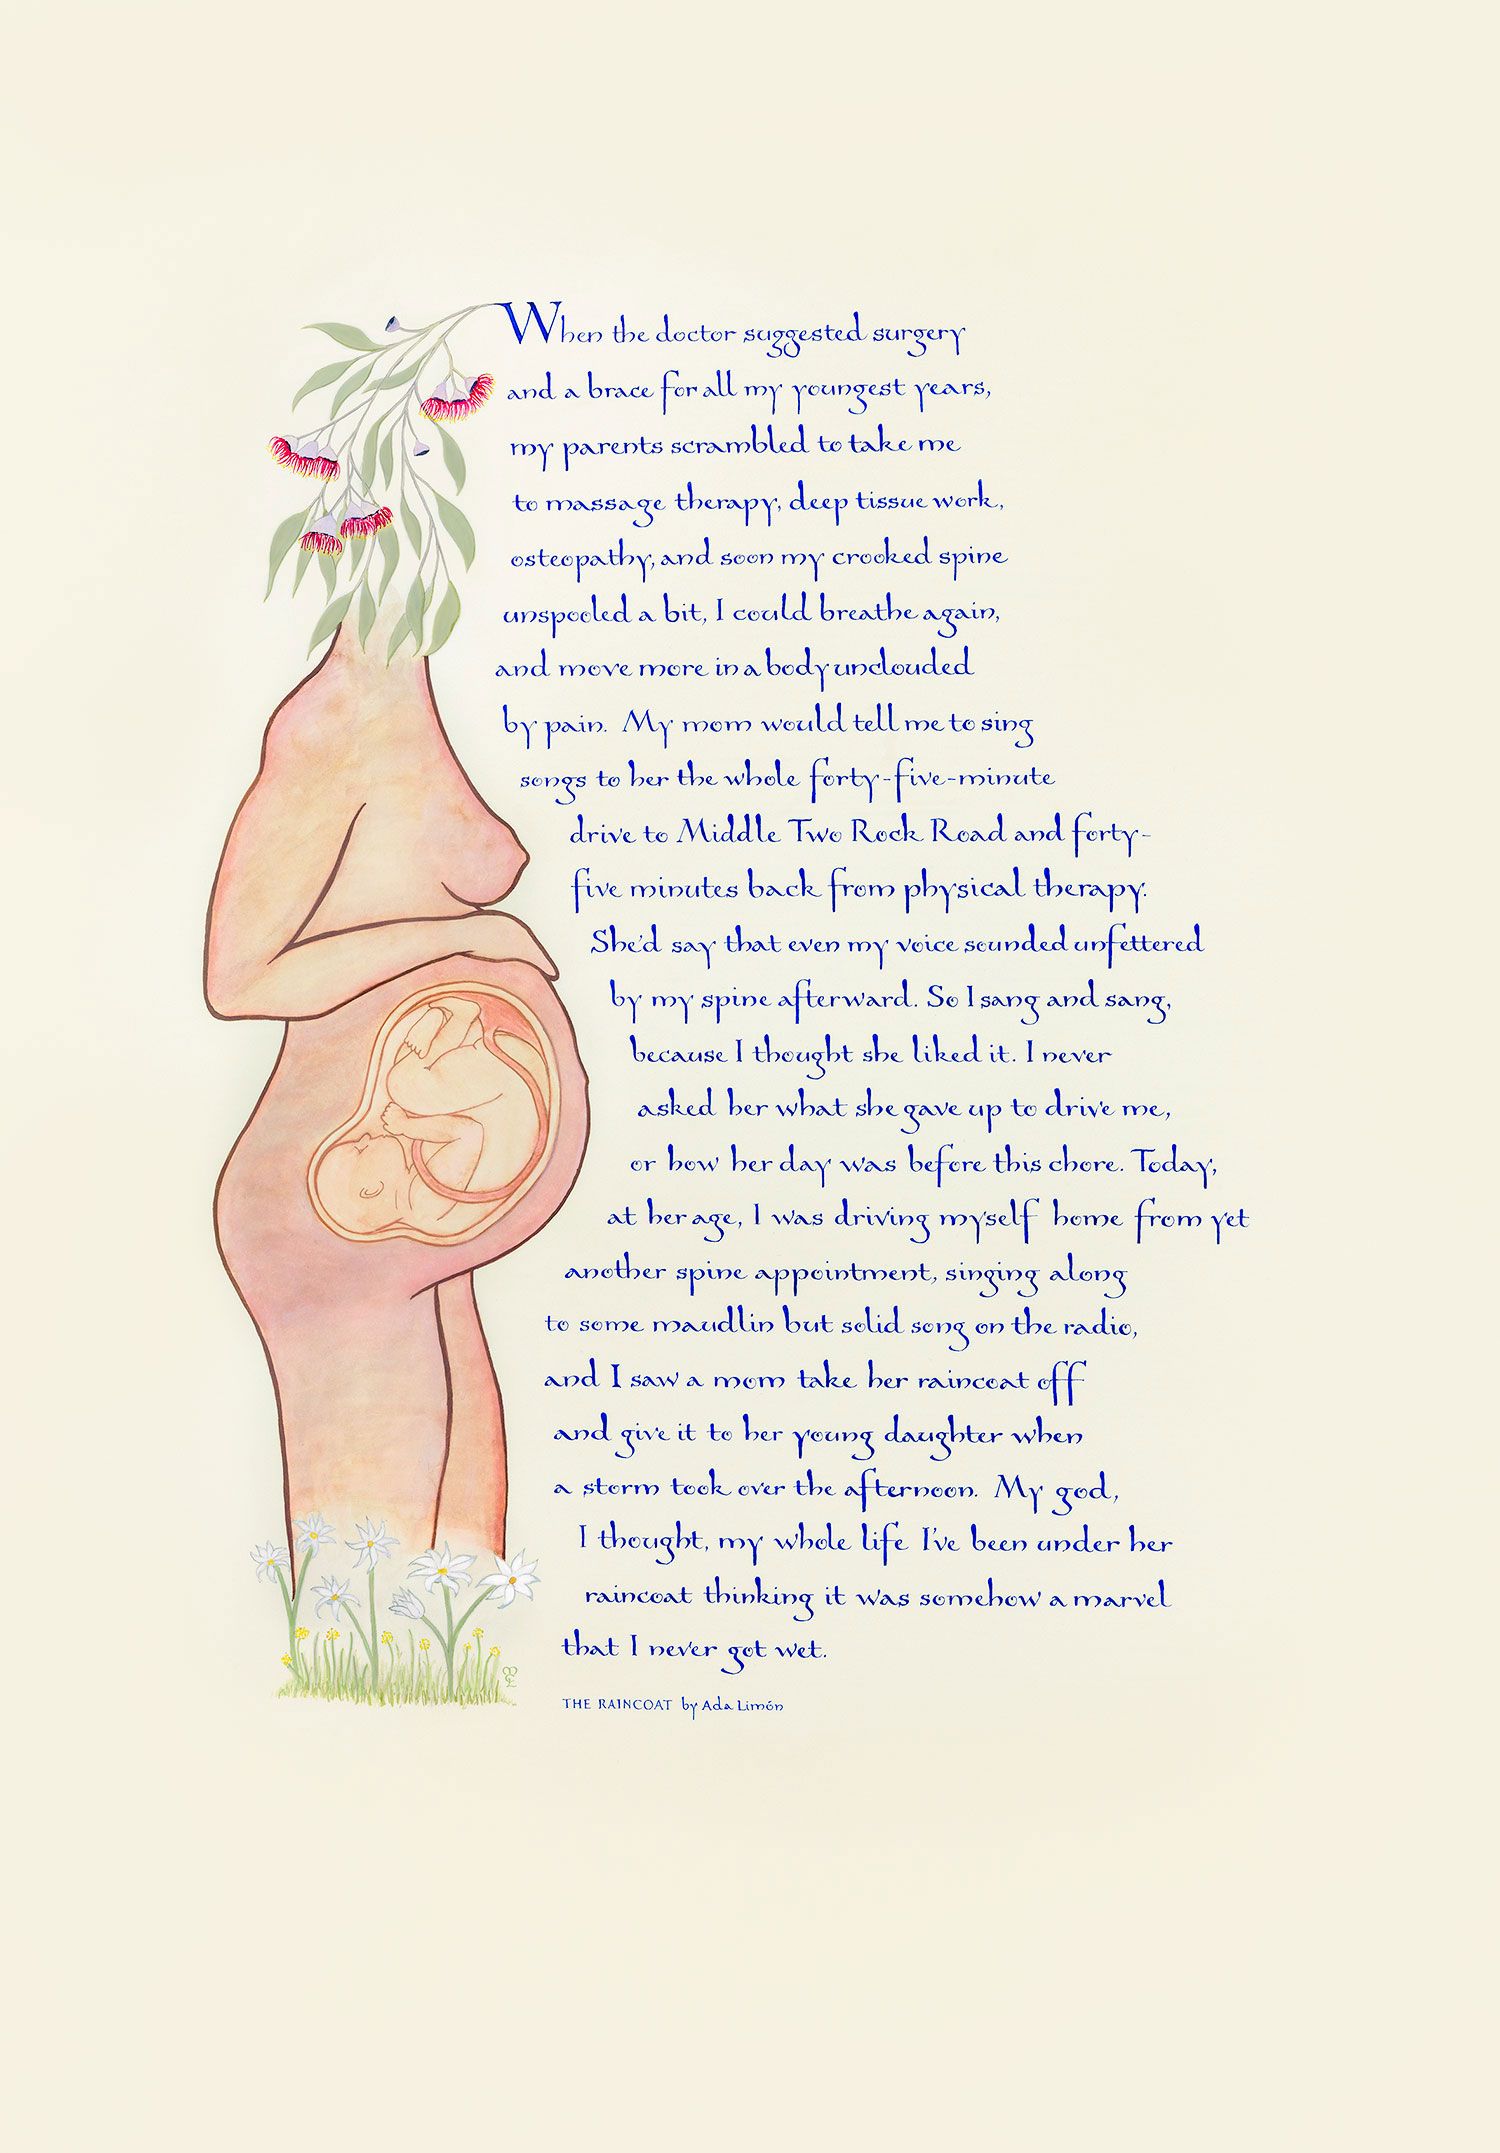 When the doctor suggested surgery
and a brace for all my youngest years,
my parents scrambled to take me
to massage therapy, deep tissue work,
osteopathy, and soon my crooked spine
unspooled a bit, I could breathe again,
and move more in a body unclouded
by pain. My mom would tell me to sing
songs to her the whole forty-five-minute
drive to Middle Two Rock Road and forty-
five minutes back from physical therapy.
She'd say that even my voice sounded unfettered
by my spine afterward. So I sang and sang,
because I thought she liked it. I never
asked her what she gave up to drive me,
or how her day was before this chore. Today,
at her age, I was driving myself home from yet
another spine appointment, singing along
to some maudlin but solid song on the radio,
and I saw a mom take her raincoat off
and give it to her young daughter when
a storm took over the afternoon. My god,
I thought, my whole life I've been under her
raincoat thinking it was somehow a marvel
that I never got wet.
THE RAINCOAT by Ada Limón